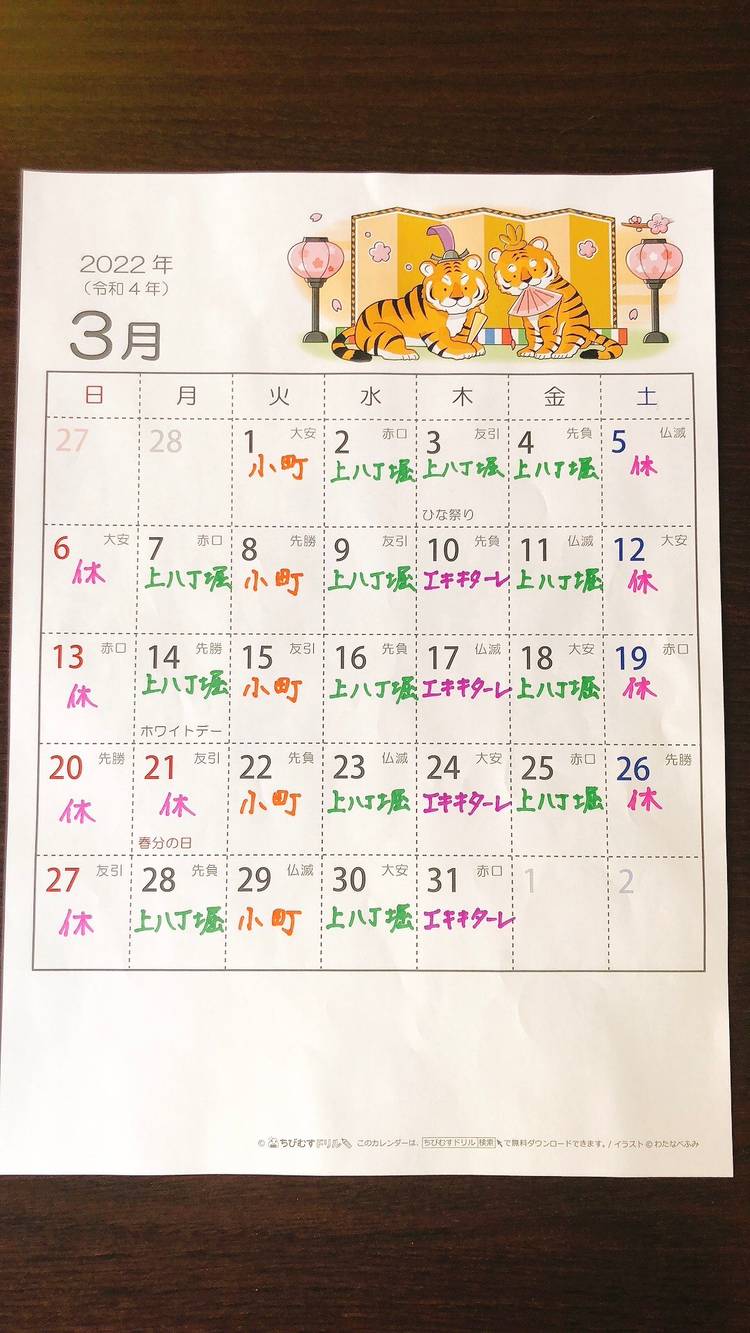 2022年
(令和4年)
3月
日 月 火 水 木 金 土
27 28 1 大安 2 赤口 3 友引 4 先負 5 仏滅
小町 上八丁堀 上八丁堀 上八丁堀 休
ひな祭り
6 大安 7 赤口 8 先勝 9 友引 10 先負 11 仏滅 12 大安
休 上八丁堀 小町 上八丁堀 エキキターレ 上八丁堀 休
13 赤口 14 先勝 15 友引 16 先負 17 仏滅 18 大安 19 赤口
休 上八丁堀 小町 上八丁堀 エキキターレ 上八丁堀 休
ホワイトデー
20 先勝 21 友引 22 先負 23 仏滅 24 大安 25 赤口 26 先勝
休 休 小町 上八丁堀 エキキターレ 上八丁堀 休
春分の日
27 友引 28 先負 29 仏滅 30 大安 31 赤口 1 2
休 上八丁堀 小町 上八丁堀 エキキターレ
© ちびむすドリル このカレンダーは、ちびむすドリル 検索 で無料ダウンロードできます。/ イラスト © わたなべふみ